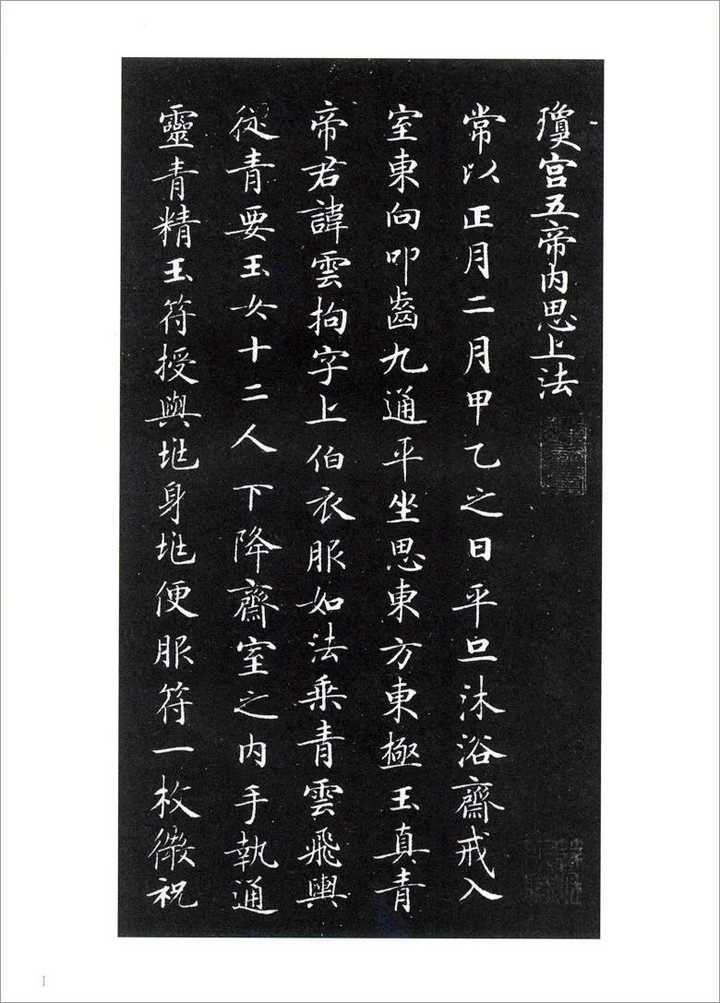 瓊宮五帝內思上法
常以正月二月甲乙之日平旦沐浴齋戒入
室東向叩齒九通平坐思東方東極玉真青
帝君諱雲拘字上伯衣服如法乘青雲飛輿
從青要玉女十二人下降齋室之內手執通
靈青精玉符授與兆身兆便服符一枚微祝
1